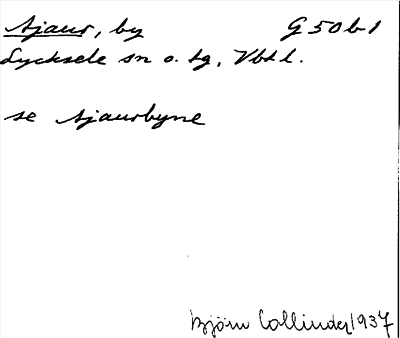 Ajaur, by G 50 b 1
Lycksele sn o. tg, Vbtl.
se Ajaurbyne
Björn Collinder 1937